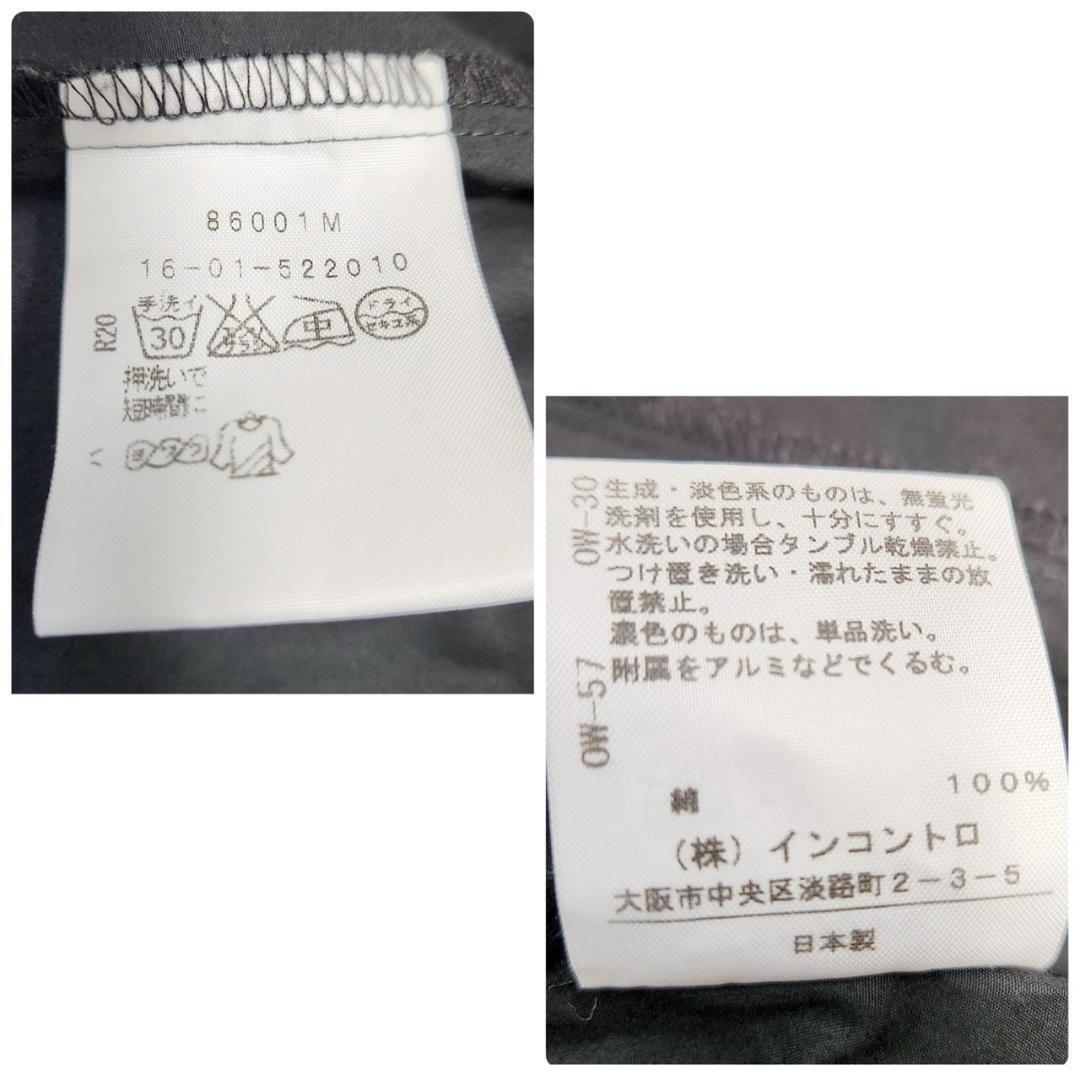 86001M
16-01-522010
R20
手洗イ
30
エンソサラシ
中
ドライ
セキユ系
押洗いで
短時間に
ハ
OW-30
生成・淡色系のものは、無蛍光
洗剤を使用し、十分にすすぐ。
水洗いの場合タンブル乾燥禁止。
つけ置き洗い・濡れたままの放
置禁止。
濃色のものは、単品洗い。
OW-57
附属をアルミなどでくるむ。
綿 100%
(株)インコントロ
大阪市中央区淡路町2-3-5
日本製